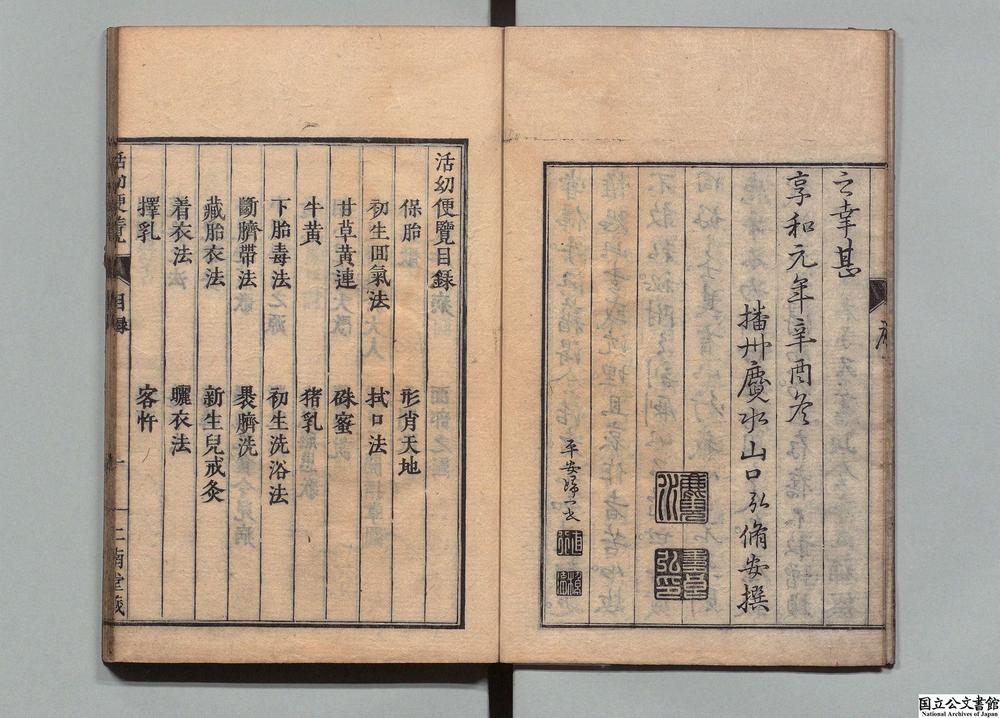 之幸甚
享和元年辛酉冬
播州廣水山口弘脩安撰
序
活幼便覽目録
保胎
形肖天地
初生回氣法
拭口法
甘草黄連
硃蜜
牛黄
猪乳
下胎毒法
初生洗浴法
斷臍帶法
裹臍洗
藏胎衣法
新生兒戒灸
着衣法
曬衣法
擇乳
客忤
活幼便覽
目録
一
二南堂藏
国立公文書館
National Archives of Japan